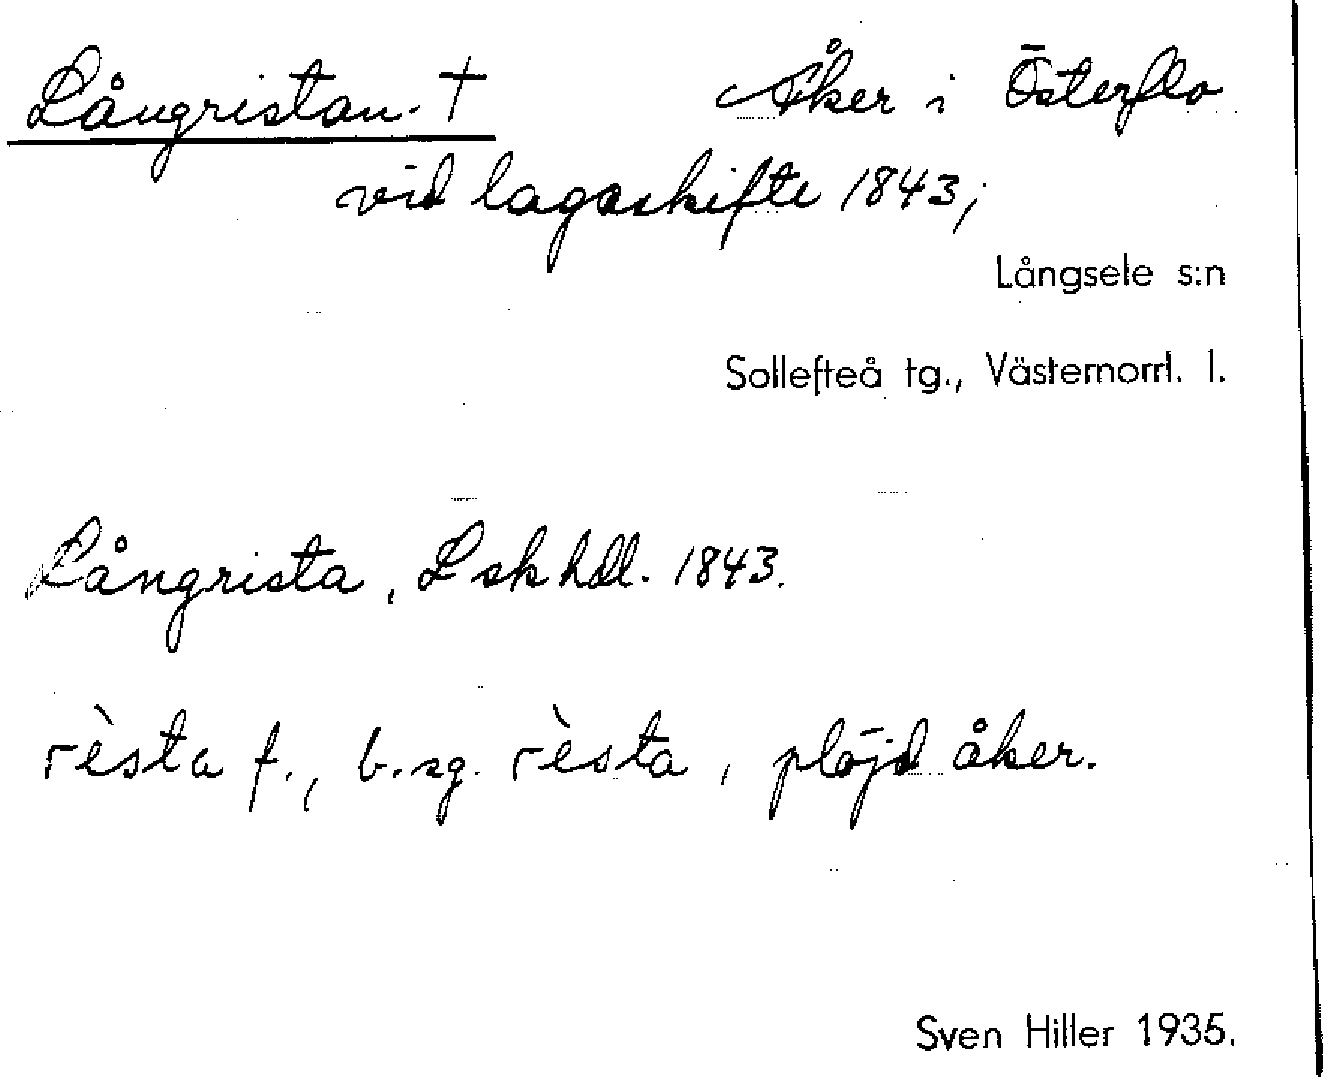 Långristan. † Åker i Österflo
vid lagaskifte 1843;
Långsele s:n
Sollefteå tg., Västernorrl. l.
Långrista, Lskhdl. 1843.
rèsta f., b.sg. rèsta, plöjd åker.
Sven Hiller 1935.